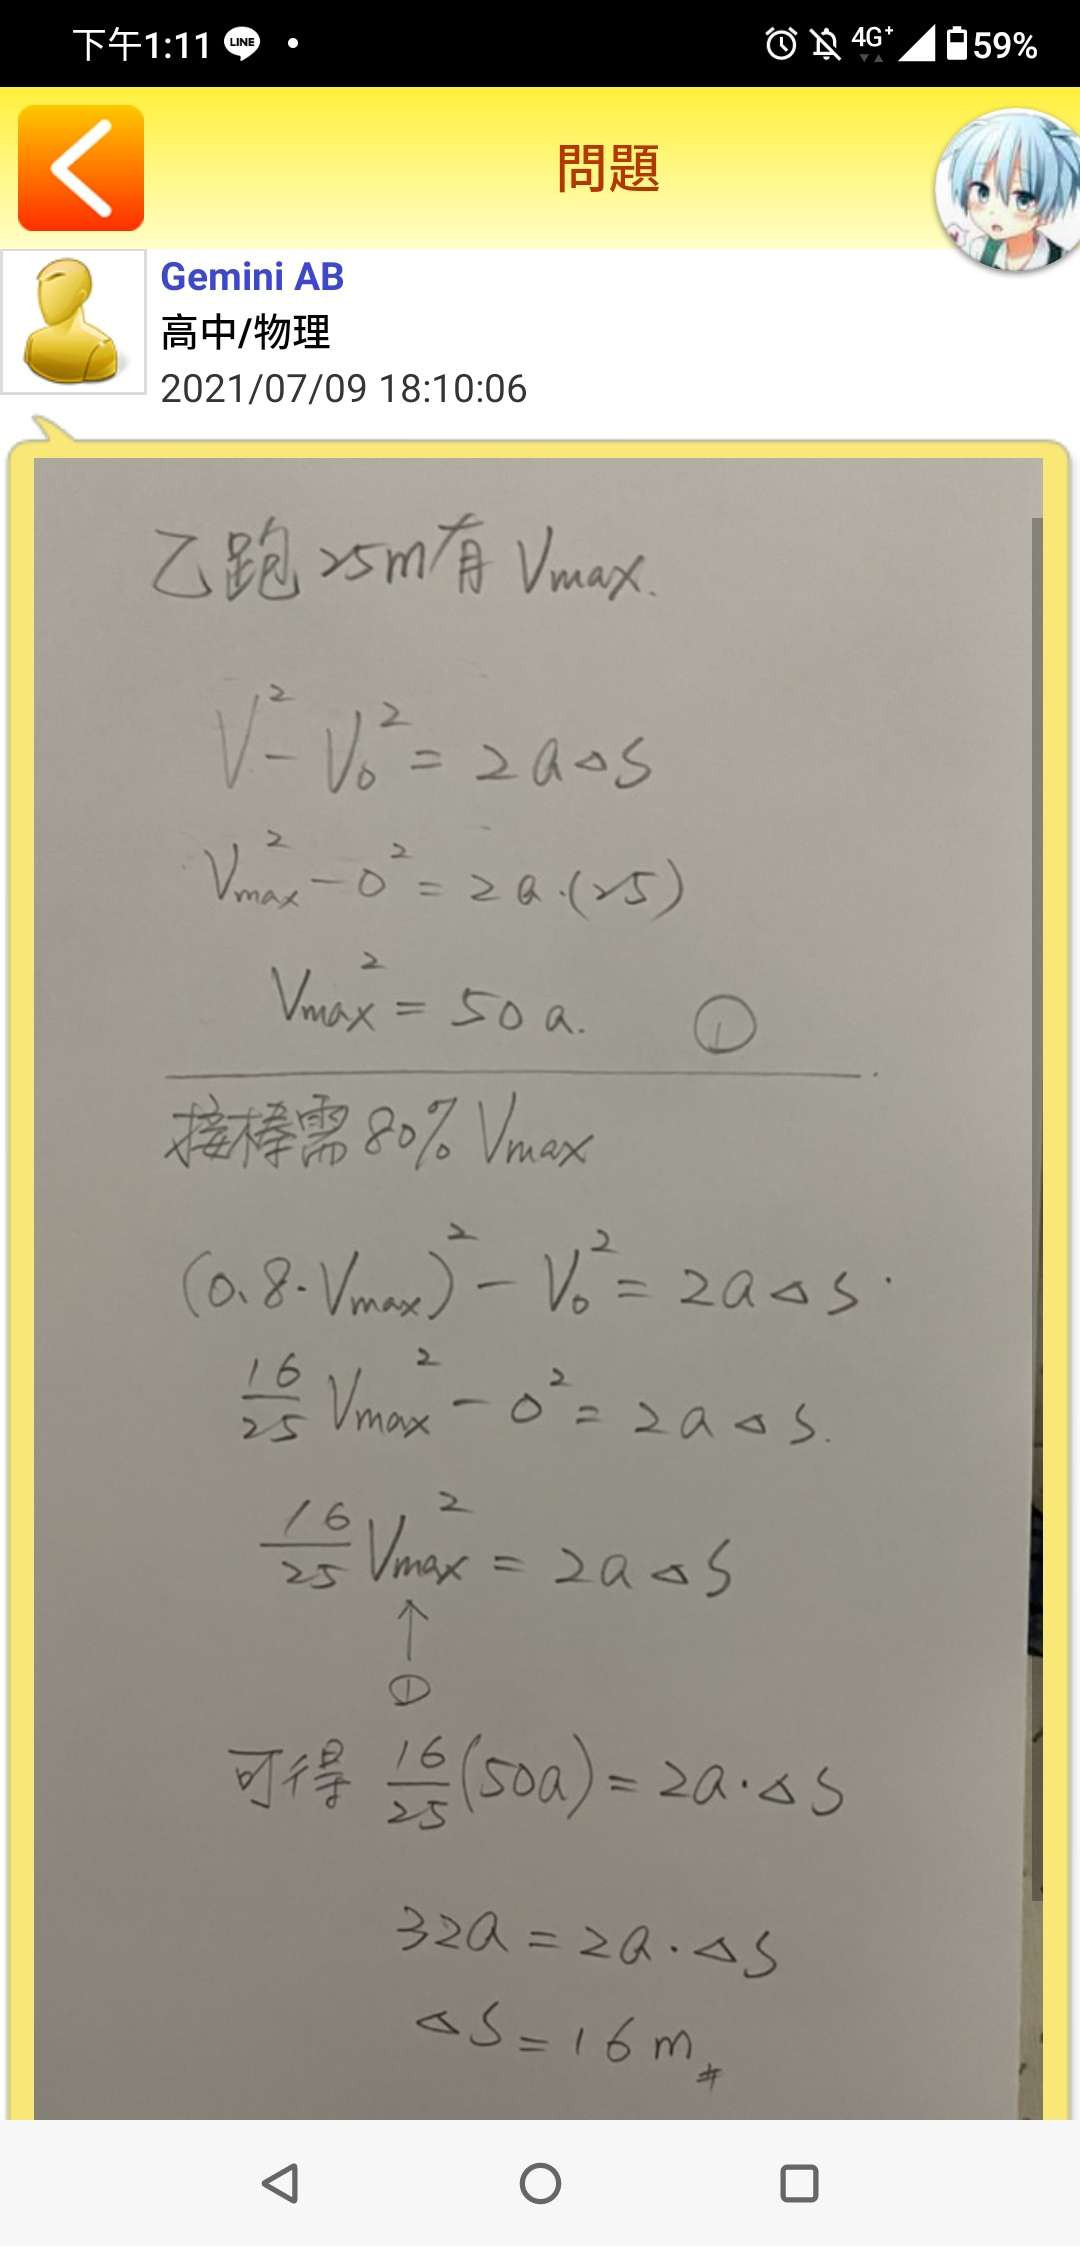 下午1:11 LINE • 4G+ 59%
問題
Gemini AB
高中/物理
2021/07/09 18:10:06
乙跑25m有Vmax.
V² - V₀² = 2a△S
Vmax² - 0² = 2a·(25)
Vmax² = 50a. ①
接棒需80% Vmax
(0.8·Vmax)² - V₀² = 2a△S
16/25 Vmax² - 0² = 2a△S.
16/25 Vmax² = 2a△S
↑
①
可得 16/25 (50a) = 2a·△S
32a = 2a·△S
△S = 16m #